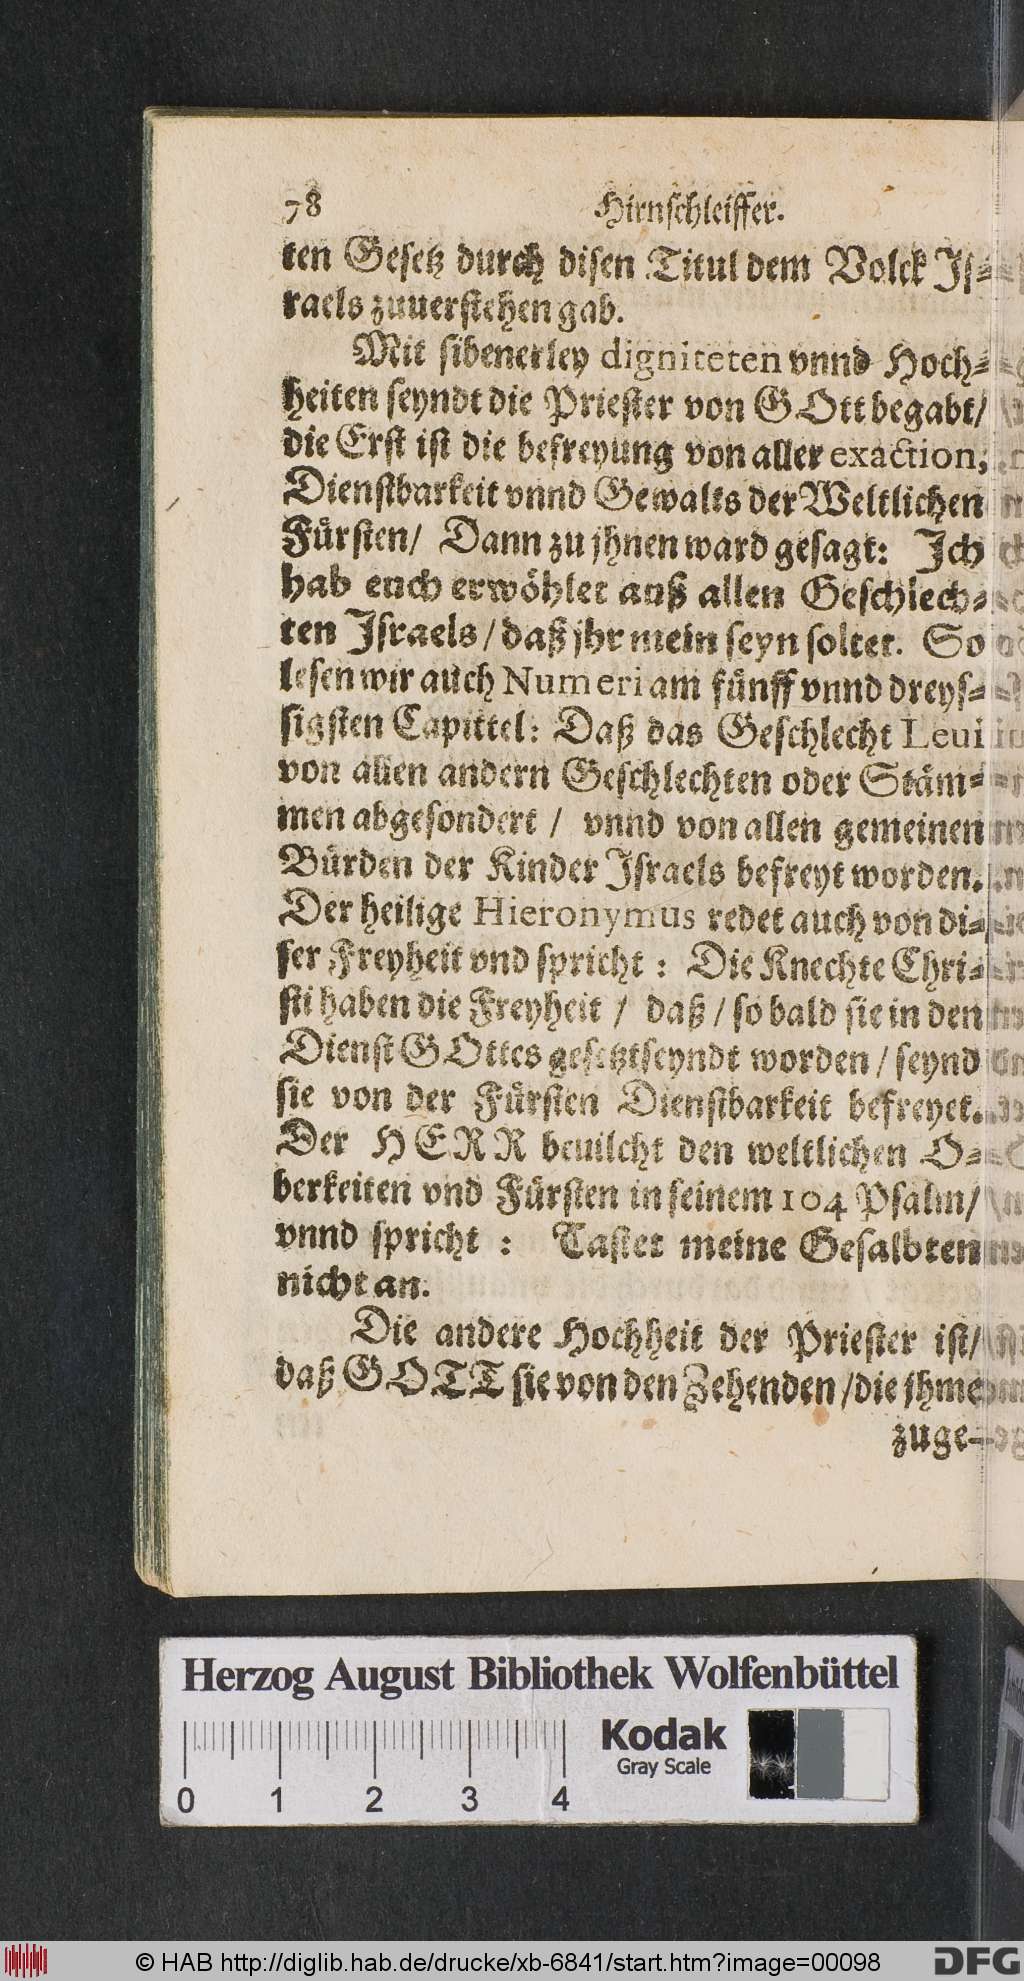 78 Hirnschleiffer.
ten Gesetz durch disen Titul dem Volck Js-
raels zuuerstehen gab.
Mit sibenerley digniteten vnnd Hoch-
heiten seyndt die Priester von GOtt begabt/
die Erst ist die befreyung von aller exaction,
Dienstbarkeit vnnd Gewalts der Weltlichen
Fürsten/ Dann zu jhnen ward gesagt: Jch
hab euch erwöhlet auß allen Geschlech-
ten Jsraels/ daß jhr mein seyn soltet. So
lesen wir auch Numeri am fünff vnnd dreys-
sigsten Capittel: Daß das Geschlecht Leui
von allen andern Geschlechten oder Stäm-
men abgesondert / vnnd von allen gemeinen
Bürden der Kinder Jsraels befreyt worden.
Der heilige Hieronymus redet auch von di-
ser Freyheit vnd spricht : Die Knechte Chri-
sti haben die Freyheit / daß / so bald sie in den
Dienst GOttes gesetzt seyndt worden / seynd
sie von der Fürsten Dienstbarkeit befreyet.
Der HERR beuilcht den weltlichen O-
berkeiten vnd Fürsten in seinem 104 Psalm/
vnnd spricht : Tastet meine Gesalbten
nicht an.
Die andere Hochheit der Priester ist/
daß GOTT sie von den Zehenden /die jhme
zuge-
Herzog August Bibliothek Wolfenbüttel
Kodak
Gray Scale
0 1 2 3 4
© HAB http://diglib.hab.de/drucke/xb-6841/start.htm?image=00098
DFG